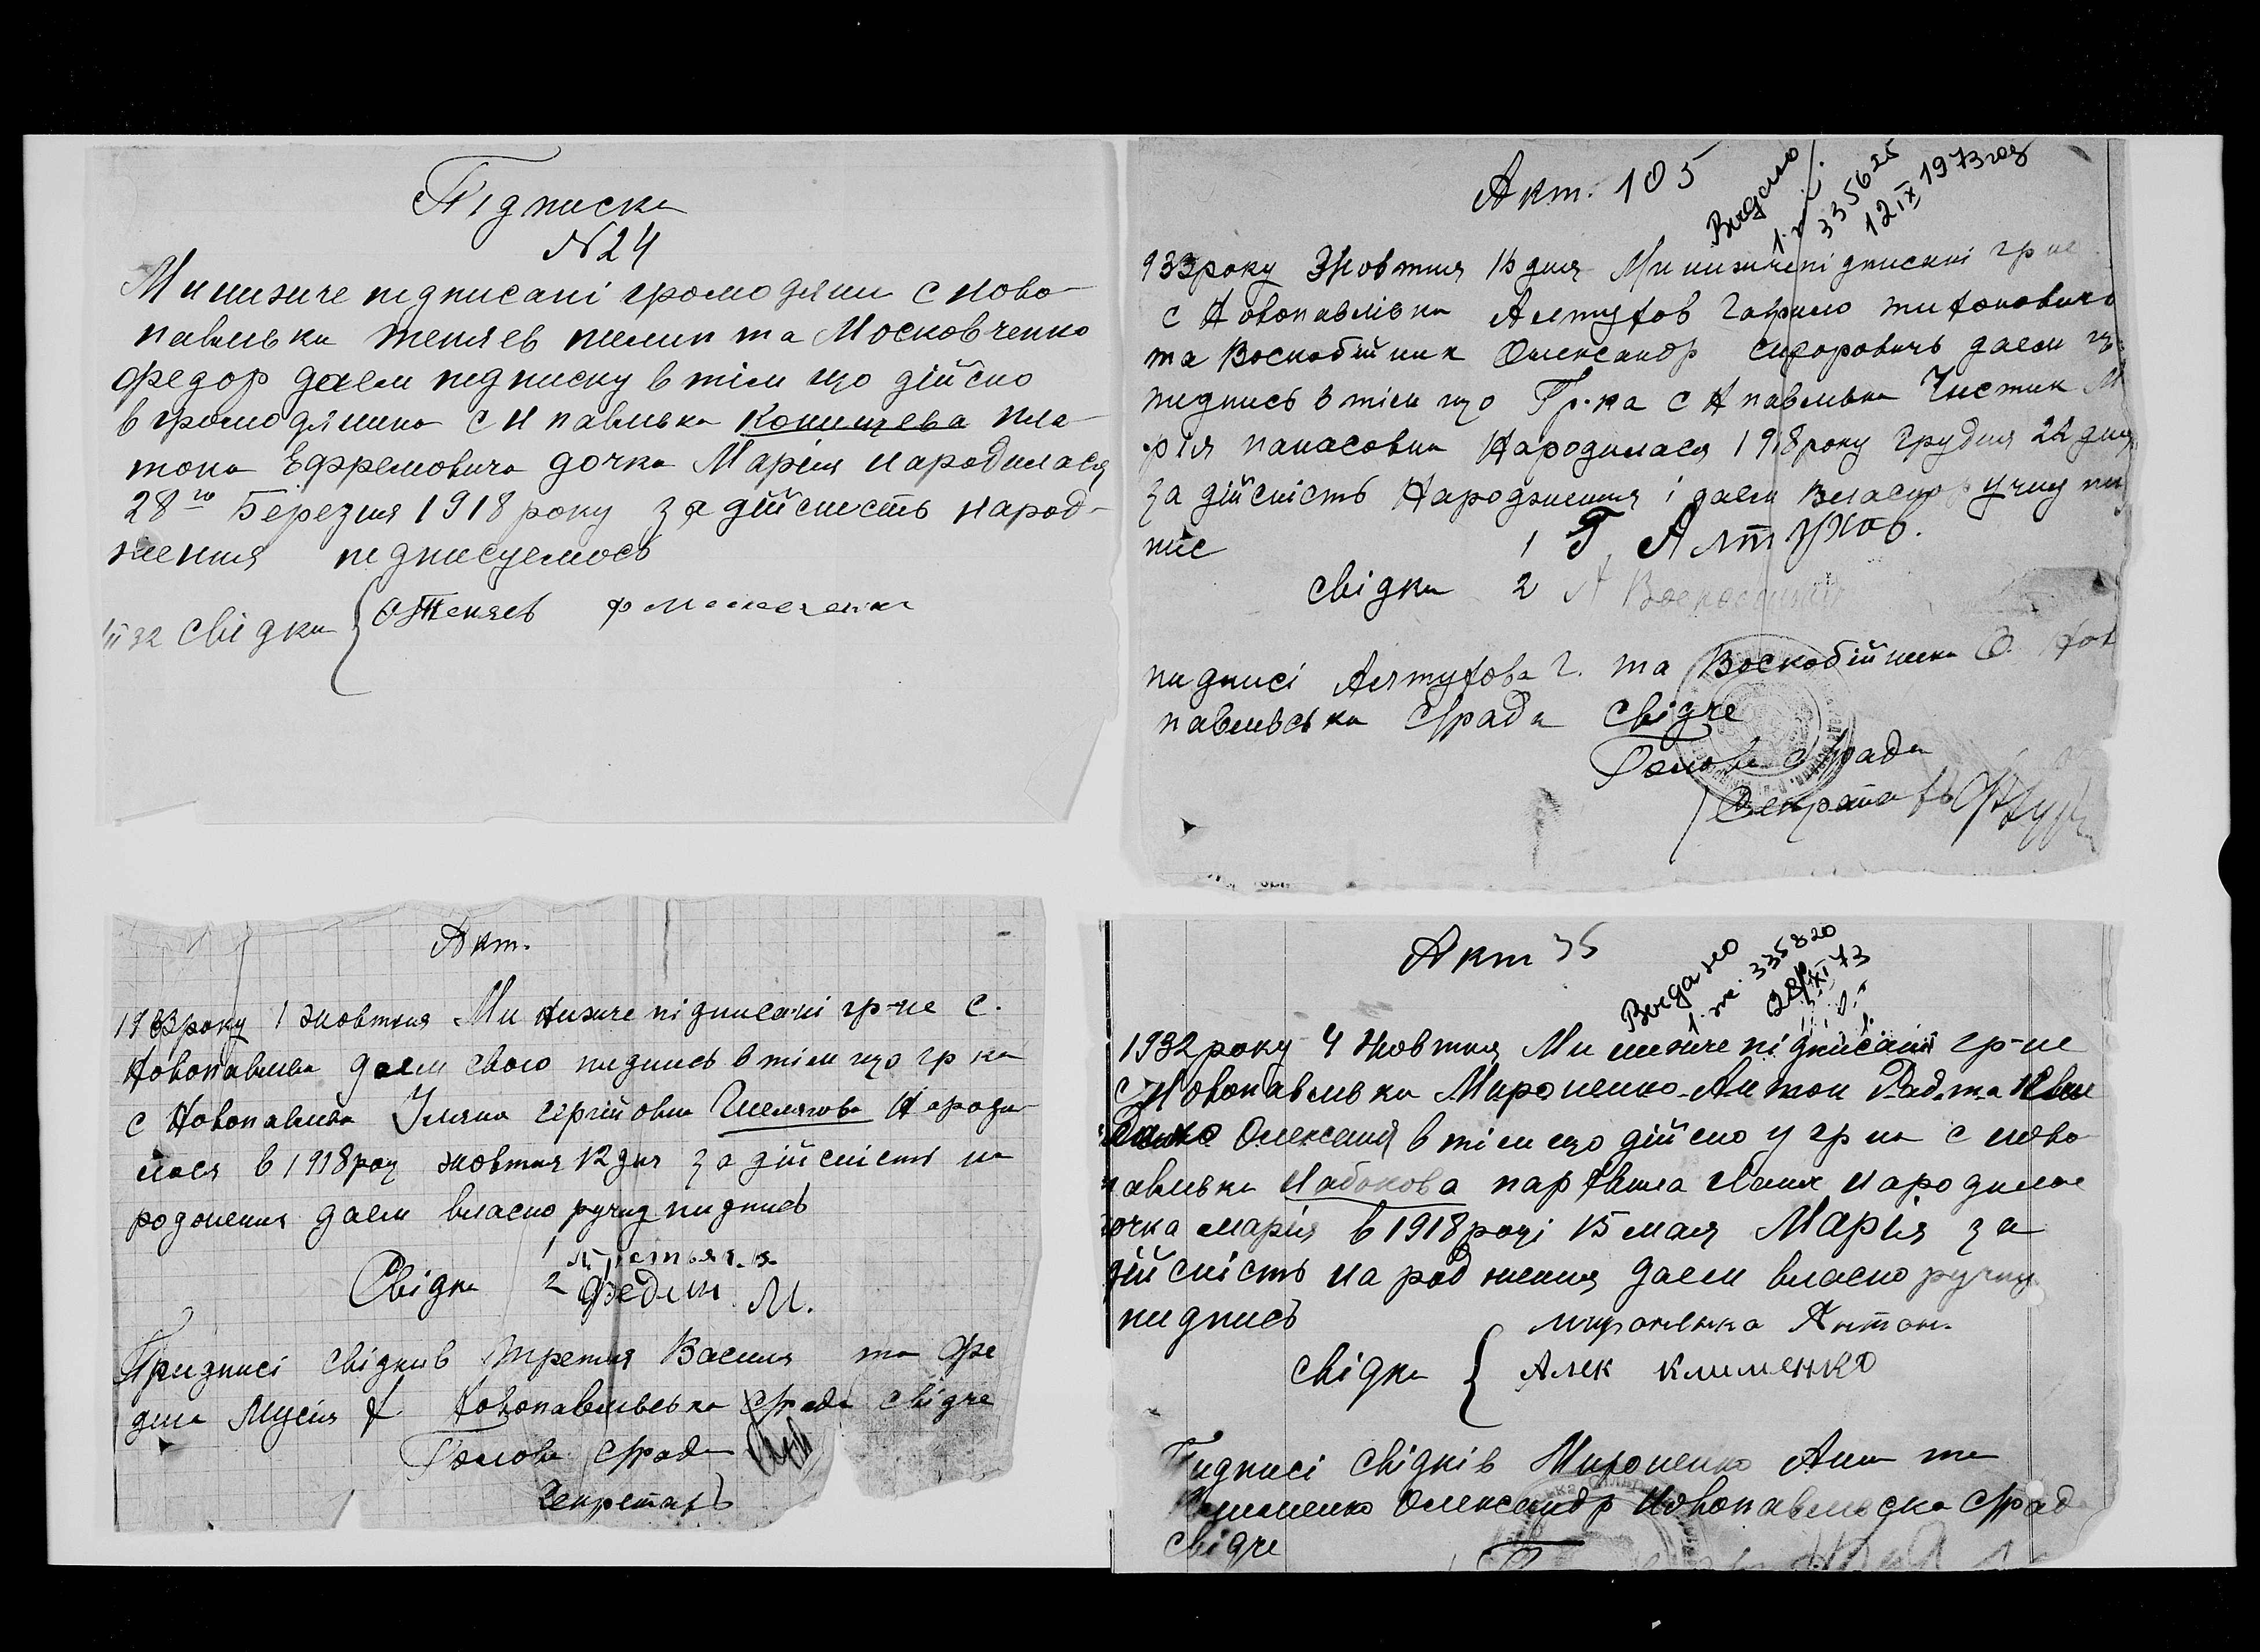 Підписка
N 24
Ми низче підписані громодяни с ново-
павлівки Теняев пилип та Московченко
Федор даем підписку в тім що дійсно
в громодянина с Н павлівка Конищева Пла-
тона Ефремовича дочка Марія народилася
28го Березня 1918 року за дійсність народ-
жения підписуемось
свідки О Теняев
Акт. 105
Видано
1 335625
12 IX 1973 год
933 року Жовтня 15 дня Ми низчепідписані гр не
с Новопавлівки Алтухов Гаврило титонович
та Воскобійник Олександр сидорович даем
підпись в тім що Гр-ка с Н павлівка Чистик М
рія панасовна Народилася 1918 року Грудня 22 дня
за дійсність Народження і даем власноручну пи
пис 1 Г. Алтухов.
свідки 2 А
пидписі Алтухова Г. та Воскобійника О. Нов
павлівська с/рада свідче
Голова с/ради
Секретарь
Акт.
1933 року 1 жовтня Ми Низче підписані гр-не с.
Новопавлівка даем свою пидпись в тім що гр ка
с Новопавлівка Уляна Сергійовна Шелягова Народи
лася в 1918 роц жовтня 12 дня за дійсність на
родження даем власно ручну пидпись
1
Свідки 2 Федин М.
Придписі свідків Третяя Василя та Фе
дина Мусія Х Новопавлівська с/рада свідче
Голова с/ради
Секретарь
Акт 35
Видано
1 т. 335820
28/XI 73
1932 року 4 Жовтня Ми низче підписані гр-не
с Новопавлівки Мироненко Антон Рад. та Клим
енко Олексаня в тім що дійсно у гр на с ново
павлівка Набокова парфвила Іваня народилас
дочка марія в 1918 році 15 мая Марія за
дійсність на род жения даем власно ручну
пидпись мироненко Антон.
свідки Алек клименко
Пидписі свідків Мироненко Анти та
Клименко Олександр Новопавлівска с/рада
свідче